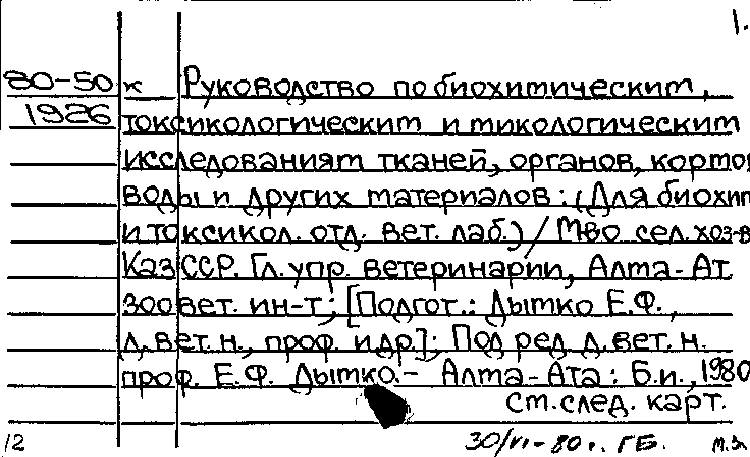 1.
80-50 к Руководство по биохимическим,
1926 токсикологическим и микологическим
исследованиям тканей, органов, кормов
воды и других материалов: (Для биохим
и токсикол. отд. вет. лаб.) / М-во сел. хоз-в
КазССР. Гл. упр. ветеринарии, Алма-Ат
зоовет. ин-т; [Подгот.: Дытко Е.Ф.,
д. вет. н., проф. и др.]; Под ред. д. вет. н.
проф. Е.Ф. Дытко. - Алма-Ата: Б.и., 1980
см. след. карт.
12 30/VI-80 г. ГБ.